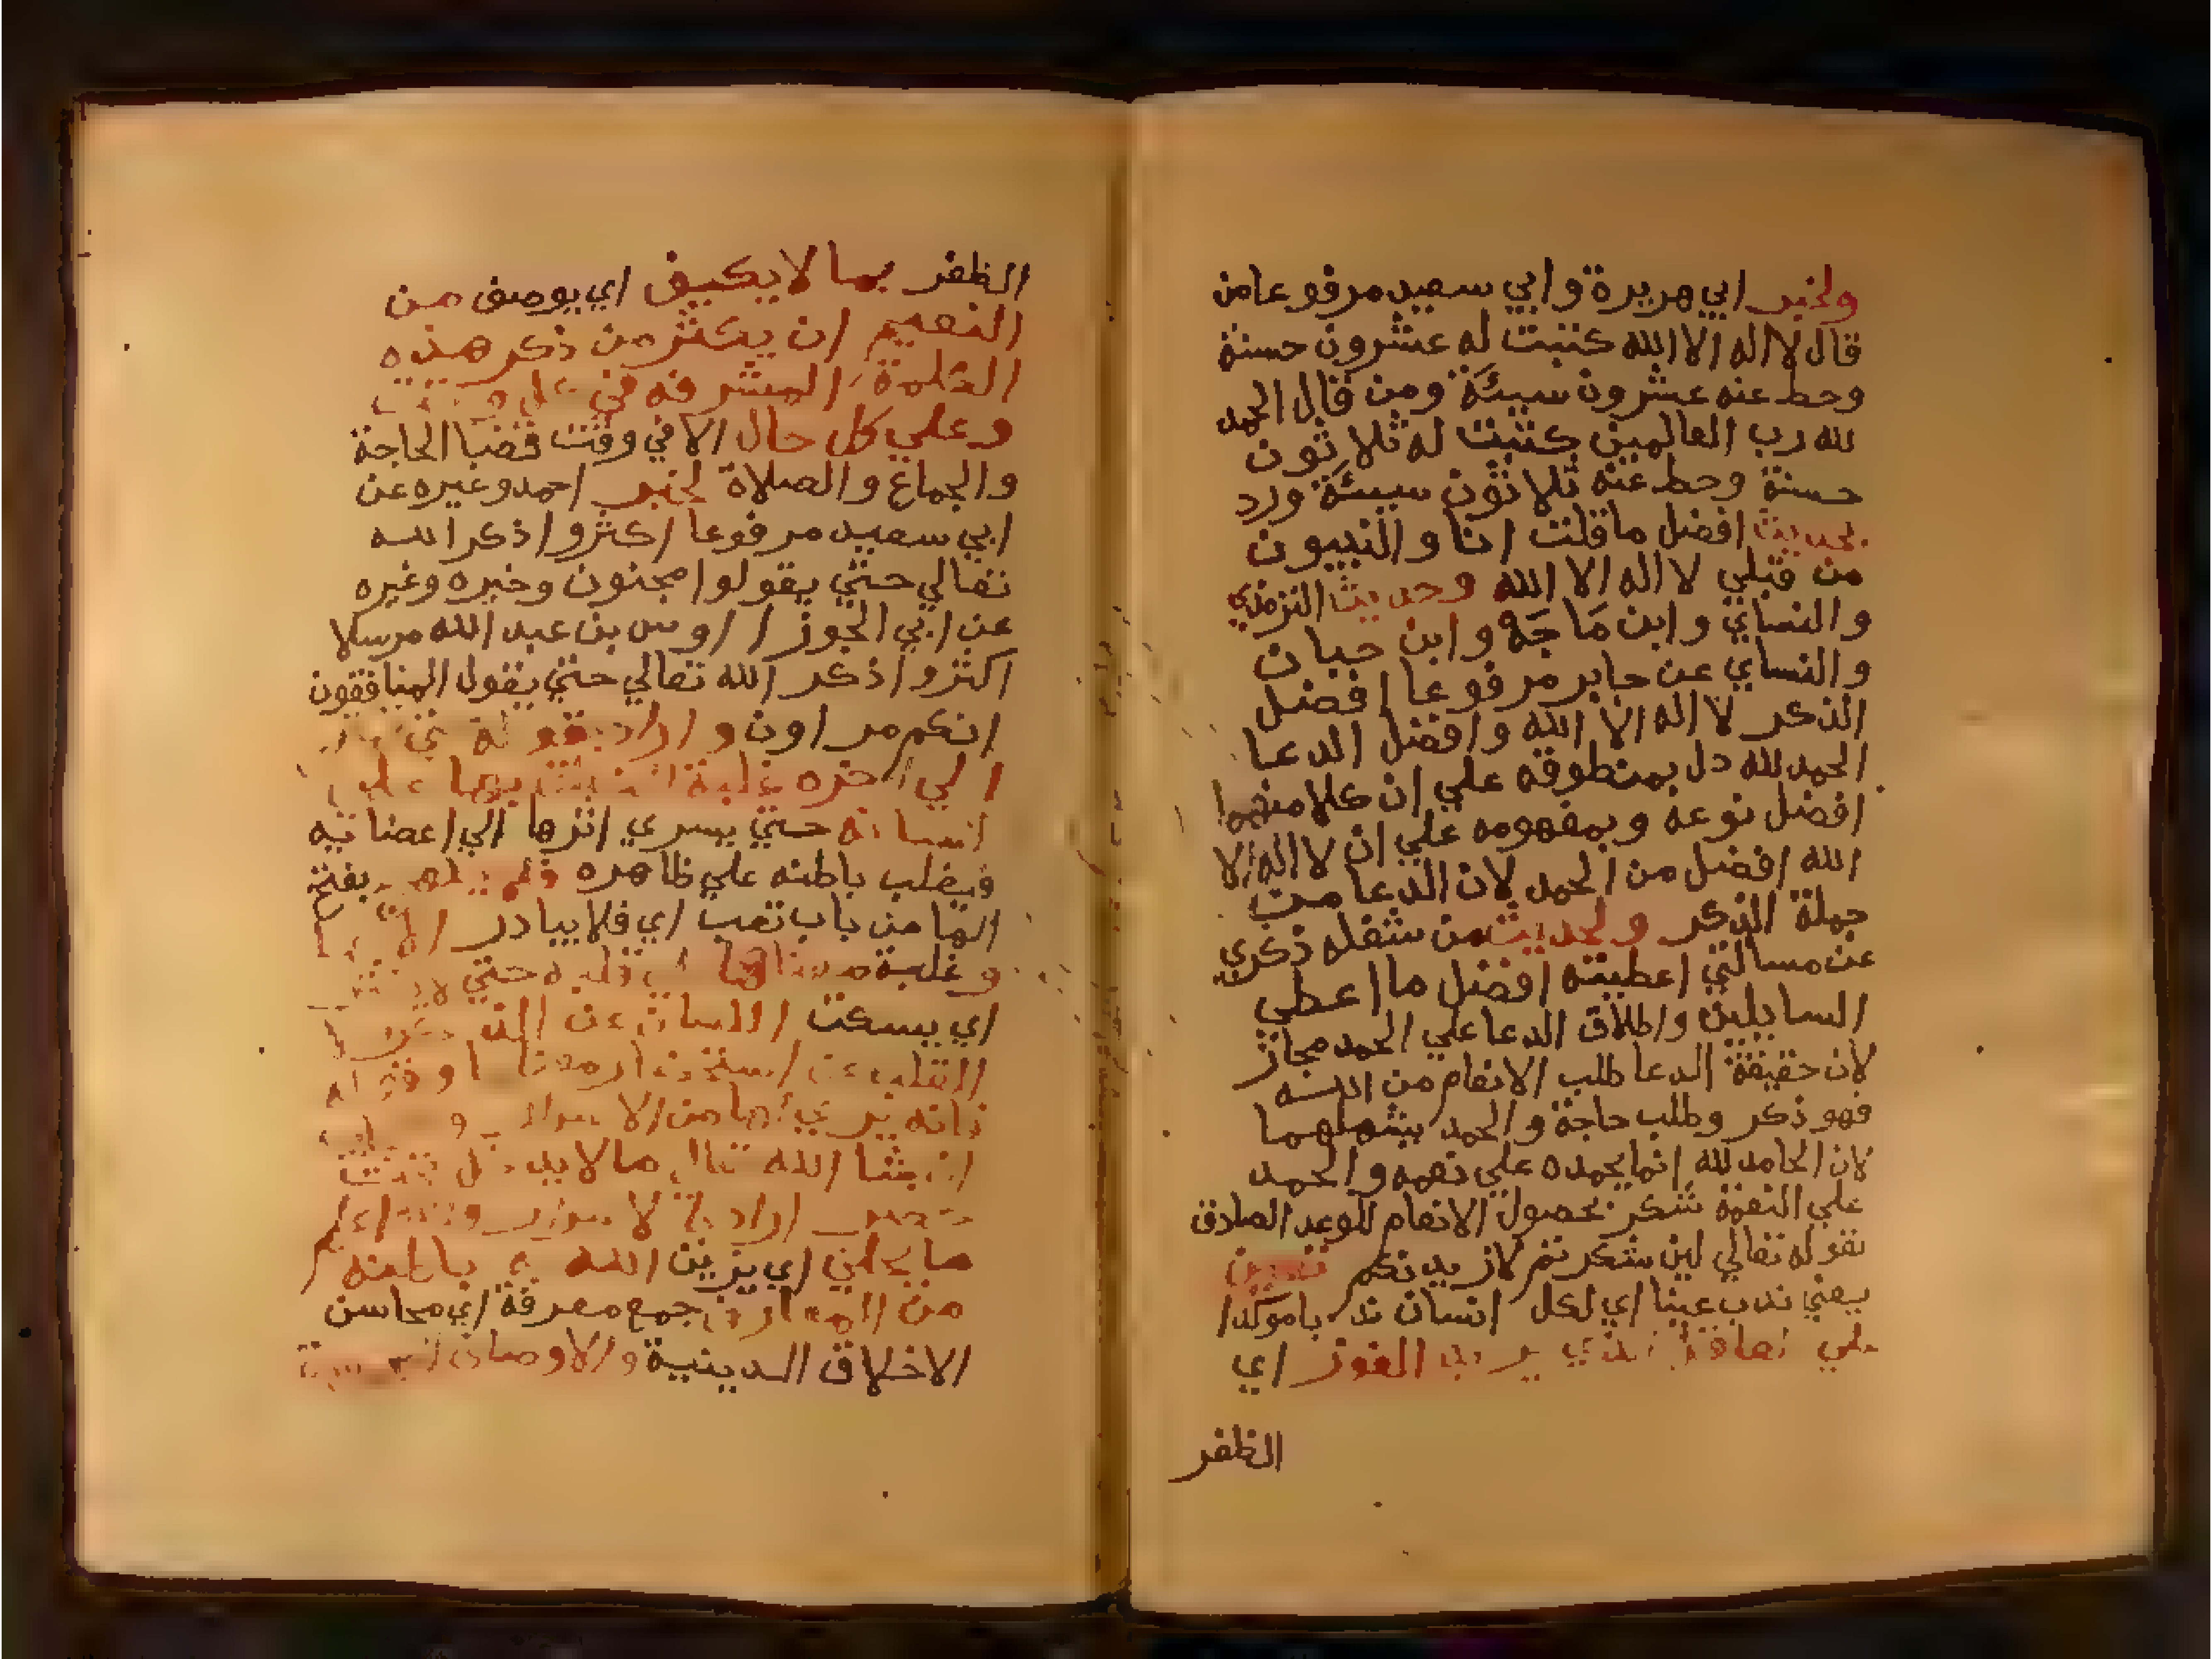 ولخبر ابي هريرة وابي سعيد مرفوعا من
قال لا اله الا الله كتبت له عشرون حسنة
وحط عنه عشرون سيئة ومن قال الحمد
لله رب العالمين كتبت له ثلاثون
حسنة وحط عنه ثلاثون سيئة وورد
لحديث افضل ما قلت انا والنبيون
من قبلي لا اله الا الله وحديث الترمذي
والنساي وابن مَاجَه وابن حبان
والنساي عن جابر مرفوعا افضل
الذكر لا اله الا الله وافضل الدعا
الحمد لله دل بمنطوقه علي ان كلا منهما
افضل نوعه وبمفهومه علي ان لا اله الا
الله افضل من الحمد لان الدعا من
جملة الذكر ولحديث من شغله ذكري
عن مسالتي اعطيته افضل ما اعطي
السايلين واطلاق الدعا علي الحمد مجاز
لان حقيقة الدعا طلب الانعام من الله
فهو ذكر وطلب حاجة والحمد يشملهما
لان الحامد لله انما يحمده علي نعمه والحمد
علي النعمة شكر بحصول الانعام للوعد الصادق
بقوله تعالي لين شكرتم لازيدنكم
يعني ندب عينا اي لكل انسان ندبا موكدا
الذي يريد الفوز اي
الظفر
الظفر بما لا يكيف اي يوصف من
النعيم ان يكثر من ذكر هذه
الكلمة المشرفه في
وعلي كل حال الا في وقت قضا الحاجة
والجماع والصلاة لخبر احمد وغيره عن
ابي سعيد مرفوعا اكثروا ذكر الله
تعالي حتي يقولوا مجنون وخبره وغيره
عن ابي الجوزا اوس بن عبد الله مرسلا
اكثروا ذكر الله تعالي حتي يقول المنافقون
انكم مراون واراد بقوله
الي اخره غلبة بها علي
انسانه حتي يسري اثرها الي اعضائه
فيغلب باطنه علي ظاهره فلم بفتح
الها من باب تعب اي فلا يبادر
وغلبة معناها قلبه حتي
اي يسكت اللسان عن الذكر
القلب عن او
فانه يري لها من الاسرار و
ان شا الله تعالي ما لا يدخل تحت
حصر اراد بالاسرار
ما يحلي اي يزين الله باطنه
من المعارف جمع معرفة اي محاسن
الاخلاق الدينية والاوصاف